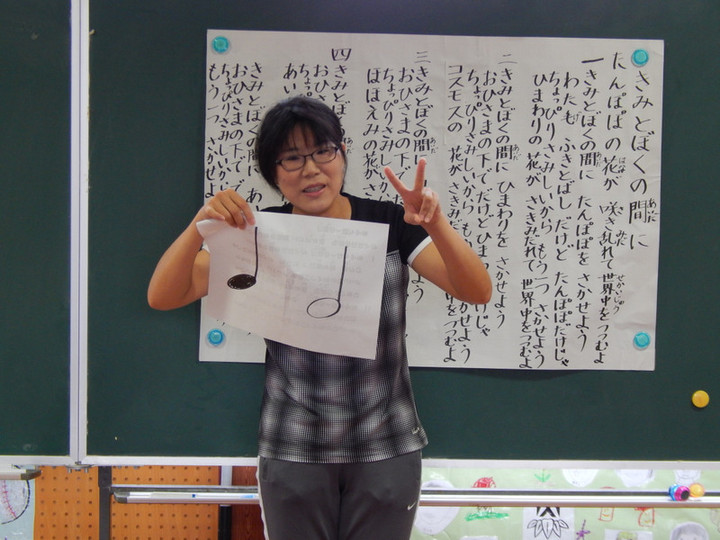 きみとぼくの間に
たんぽぽの花が 咲き乱れて世界中をつつむよ
一 きみとぼくの間に たんぽぽを さかせよう
ふきとばし だけど たんぽぽだけじゃ
ちょっぴりさみしいから もう一つ さかせよう
ひまわりの 花が さきみだれて 世界中をつつむよ
二 きみとぼくの間に ひまわりを さかせよう
おひさまの下で だけどひま じゃ
ちょっぴりさみしいから も かせよう
コスモスの 花が さきみだ 中をつつむよ
三 きみとぼくの間に よう
おひさまの下で
ちょっぴりさみしいか
ほほえみの花がさ
四 きみとぼ
おひさ
ちょっぴ
あい
きみとぼくの間に あ
おひさまの下で
ちょっぴりさみしいか
もう一つ さかせよ